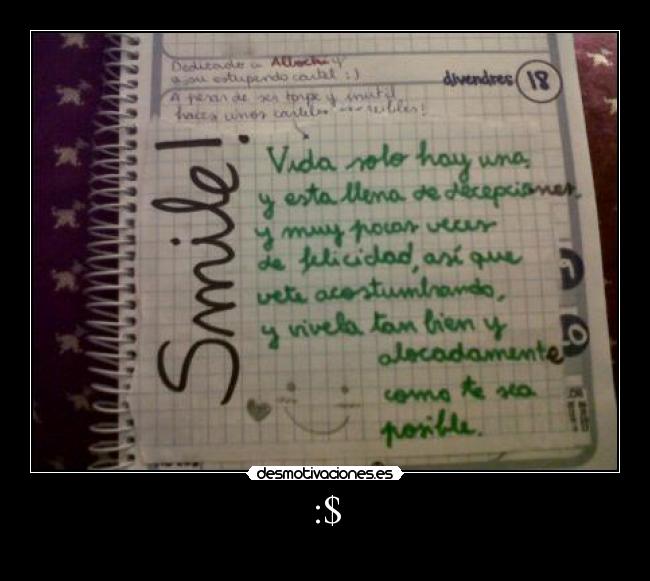 Dedicado a
a su estupendo cartel :)
divendres 18
A pesar de ser torpe y inutil
haces unos carteles increibles!
Smile!
Vida solo hay una,
y esta llena de decepciones,
y muy pocas veces
de felicidad, así que
vete acostumbrando,
y vivela tan bien y
alocadamente
como te sea
posible.
desmotivaciones.es
:$